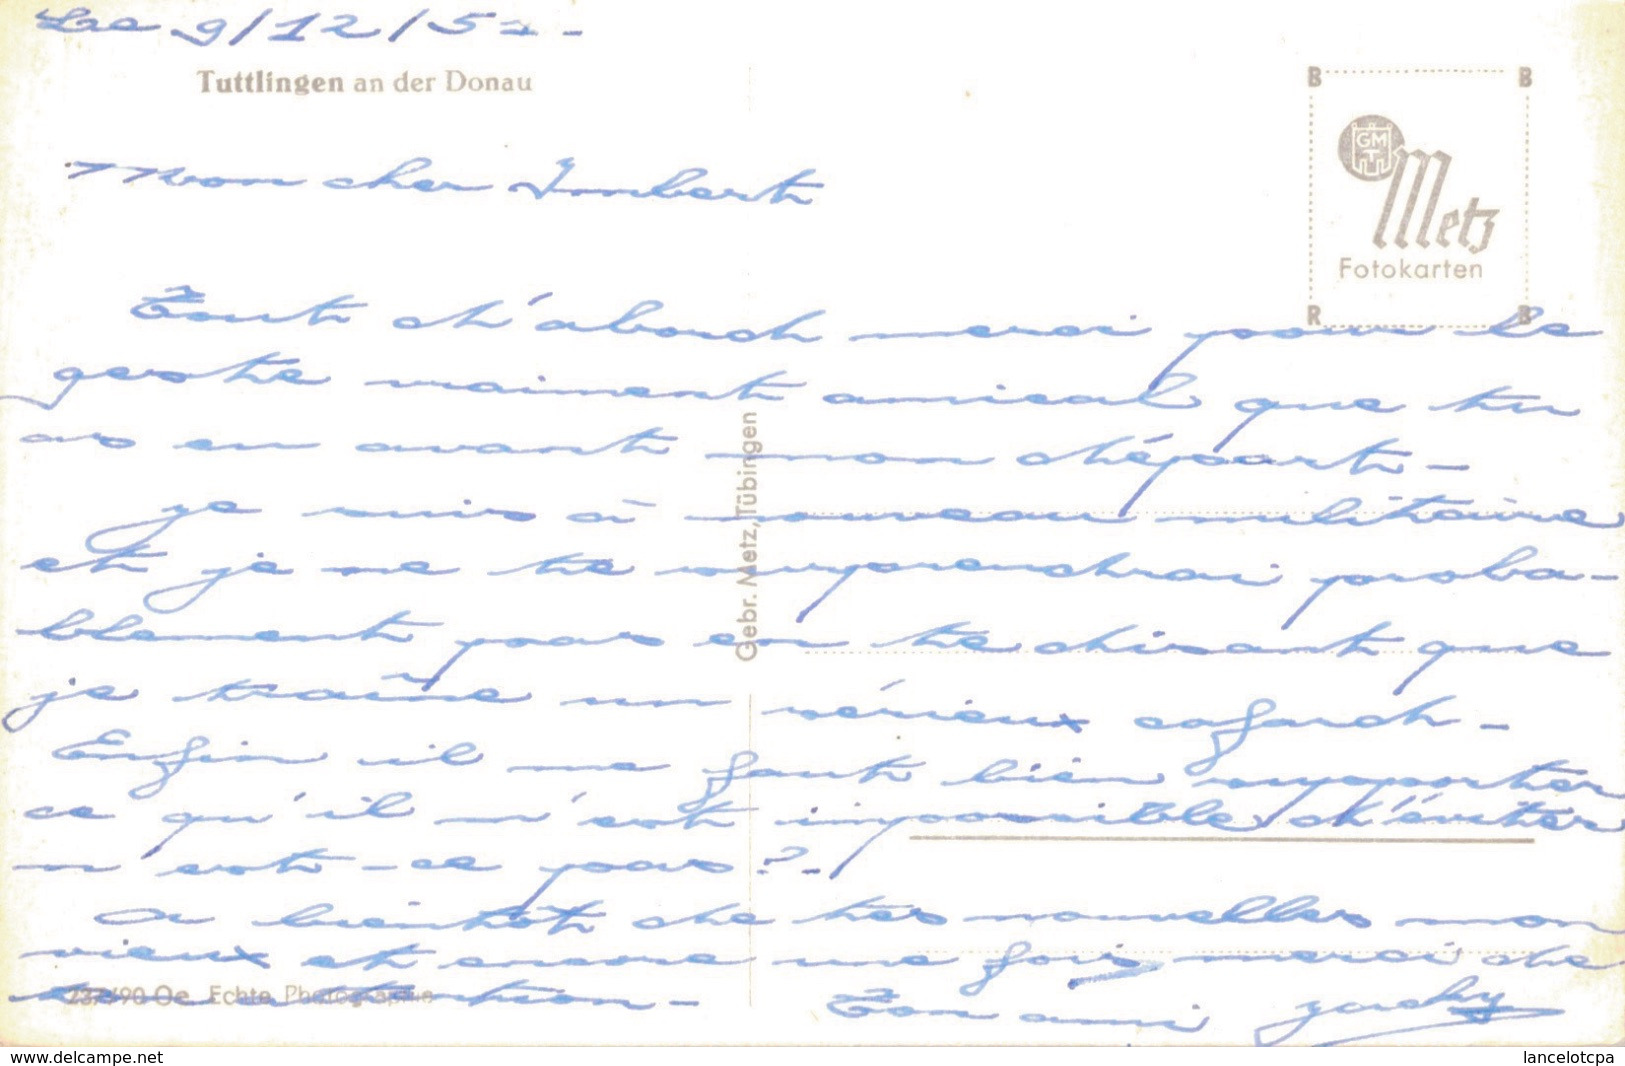 Le 9/12/52-
Tuttlingen an der Donau
B B
GM
Metz
Fotokarten
R B
Mon cher Imbert
Tout d'abord merci pour le
geste vraiment amical que tu
as eu avant mon départ-
je suis à nouveau militaire
et je ne te surprendrai proba-
blement pas en te disant que
je traîne un sérieux cafard-
Enfin il me faut bien supporter
ce qu'il m'est impossible d'éviter
n'est-ce pas?-
A bientôt de tes nouvelles mon
vieux et encore une fois merci de
attention-
Ton ami Jacky
Gebr. Metz, Tübingen
237690 Oe. Echte Photographie
www.delcampe.net
lancelotcpa